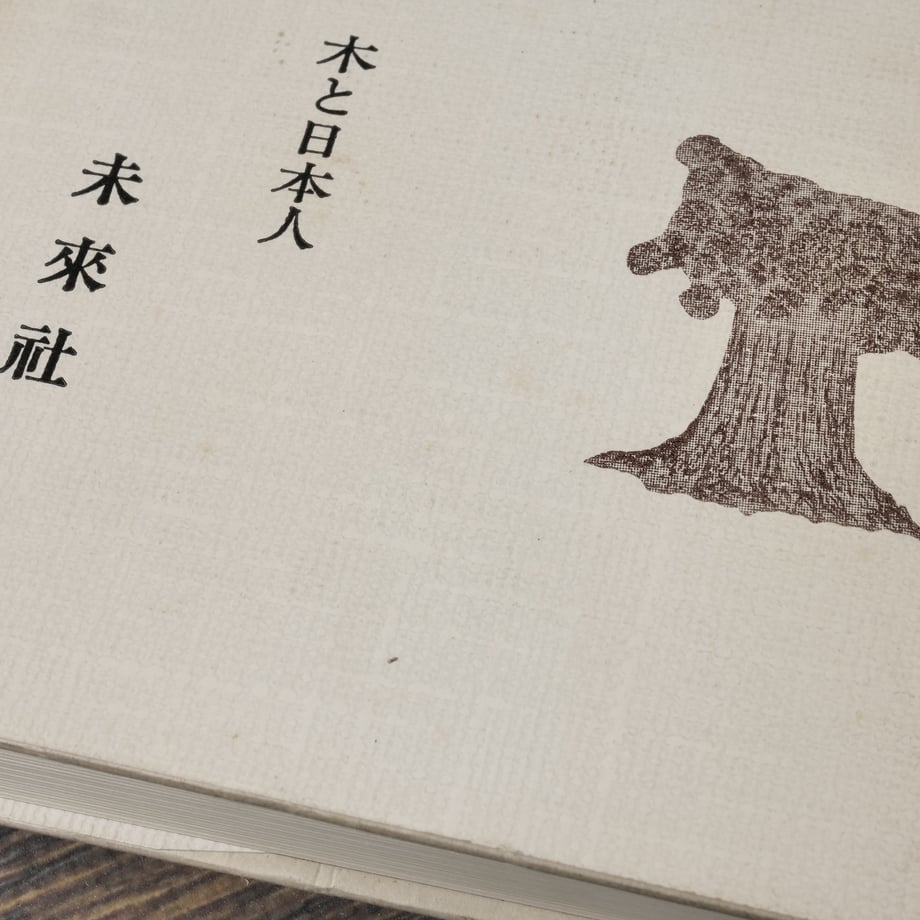 木と日本人
未來社